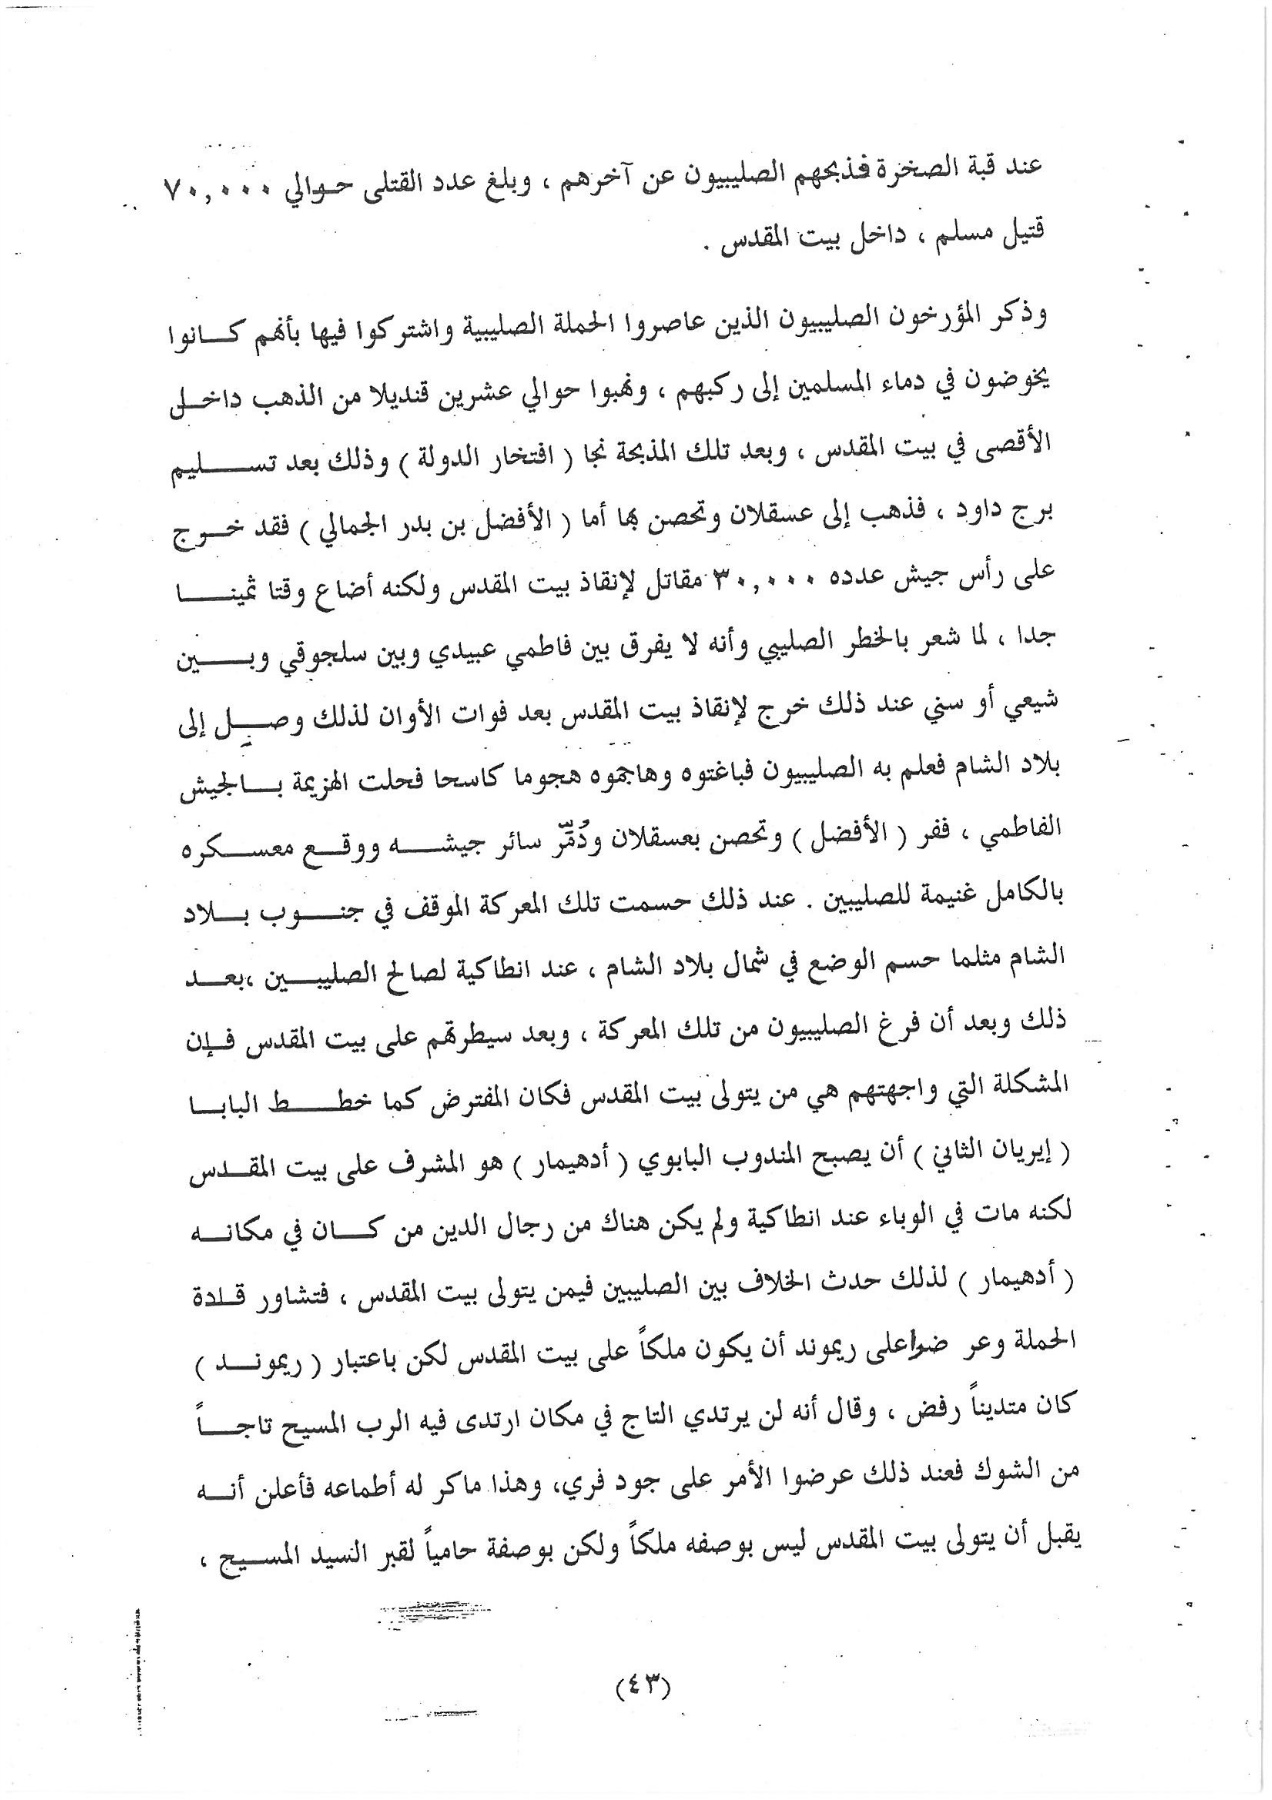 عند قبة الصخرة فذبحهم الصليبيون عن آخرهم ، وبلغ عدد القتلى حوالي ٧٠,٠٠٠
قتيل مسلم ، داخل بيت المقدس .
وذكر المؤرخون الصليبيون الذين عاصروا الحملة الصليبية واشتركوا فيها بأنهم كانوا
يخوضون في دماء المسلمين إلى ركبهم ، ونهبوا حوالي عشرين قنديلا من الذهب داخل
الأقصى في بيت المقدس ، وبعد تلك المذبحة نجا ( افتخار الدولة ) وذلك بعد تسليم
برج داود ، فذهب إلى عسقلان وتحصن بها أما ( الأفضل بن بدر الجمالي ) فقد خرج
على رأس جيش عدده ٣٠,٠٠٠ مقاتل لإنقاذ بيت المقدس ولكنه أضاع وقتا ثمينا
جدا ، لما شعر بالخطر الصليبي وأنه لا يفرق بين فاطمي عبيدي وبين سلجوقي وبين
شيعي أو سني عند ذلك خرج لإنقاذ بيت المقدس بعد فوات الأوان لذلك وصل إلى
بلاد الشام فعلم به الصليبيون فباغتوه وهاجموه هجوما كاسحا فحلت الهزيمة بالجيش
الفاطمي ، ففر ( الأفضل ) وتحصن بعسقلان ودُمِّر سائر جيشه ووقع معسكره
بالكامل غنيمة للصليبين . عند ذلك حسمت تلك المعركة الموقف في جنوب بلاد
الشام مثلما حسم الوضع في شمال بلاد الشام ، عند انطاكية لصالح الصليبين ،بعد
ذلك وبعد أن فرغ الصليبيون من تلك المعركة ، وبعد سيطرتهم على بيت المقدس فإن
المشكلة التي واجهتهم هي من يتولى بيت المقدس فكان المفترض كما خطط البابا
( إيربان الثاني ) أن يصبح المندوب البابوي ( أدهيمار ) هو المشرف على بيت المقدس
لكنه مات في الوباء عند انطاكية ولم يكن هناك من رجال الدين من كان في مكانه
( أدهيمار ) لذلك حدث الخلاف بين الصليبين فيمن يتولى بيت المقدس ، فتشاور قادة
الحملة وعر ضواعلى ريموند أن يكون ملكاً على بيت المقدس لكن باعتبار ( ريموند )
كان متديناً رفض ، وقال أنه لن يرتدي التاج في مكان ارتدى فيه الرب المسيح تاجاً
من الشوك فعند ذلك عرضوا الأمر على جود فري، وهذا ماكر له أطماعه فأعلن أنه
يقبل أن يتولى بيت المقدس ليس بوصفه ملكاً ولكن بوصفة حامياً لقبر السيد المسيح ،
(٤٣)